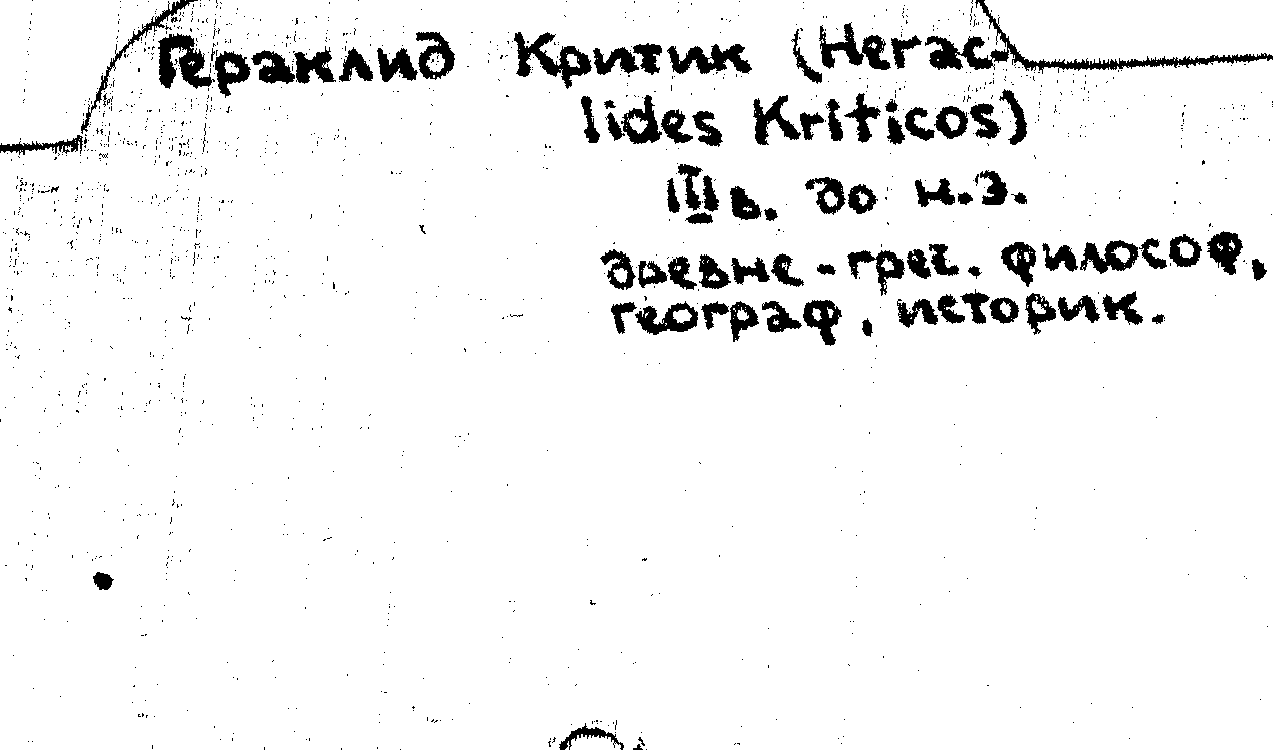 Гераклид Критик (Herac-
lides Kriticos)
III в. до н.э.
древне-греч. философ,
географ, историк.